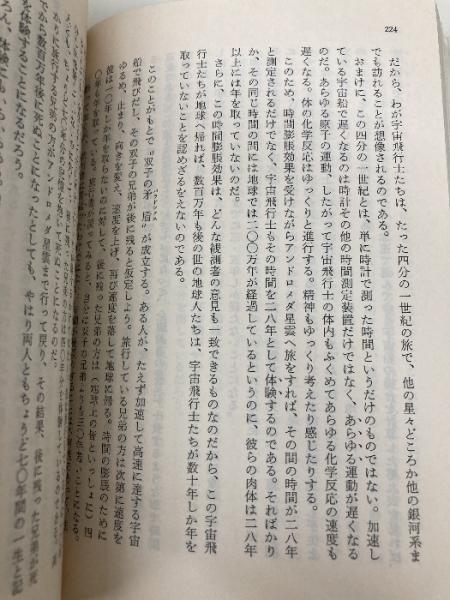 224
だから、わが宇宙飛行士たちは、たった四分の一世紀の旅で、他の星々どころか他の銀河系ま
でも訪れることが想像されるのである。
おまけに、この四分の一世紀とは、単に時計で測った時間というだけのものではない。加速し
ている宇宙船で遅くなるのは時計その他の時間測定装置だけではなく、あらゆる運動が遅くなる
のだ。あらゆる原子の運動、したがって宇宙飛行士の体内もふくめてあらゆる化学反応の速度も
遅くなる。体の化学反応はゆっくりと進行する。精神もゆっくり考えたり感じたりする。
このため、時間膨脹効果を受けながらアンドロメダ星雲へ旅をすれば、その間の時間が二八年
と測定されるだけでなく、宇宙飛行士もその時間を二八年として体験するのである。そればかり
か、その同じ時間の間には地球では二〇〇万年が経過しているというのに、彼らの肉体は二八年
以上には年を取っていないのだ。
さらに、この時間膨脹効果は、どんな観測者の意見も一致できるものなのだから、この宇宙飛
行士たちが地球へ帰れば、数百万年も後の世の地球人たちは、宇宙飛行士たちが数十年しか年を
取っていないことを認めざるをえないのである。
このことがもとで〝双子の矛盾〟が成立する。ある人が、たえず加速して高速に達する宇宙
船で飛びだし、その双子の兄弟が後に残ると仮定しよう。旅行している兄弟の方は次第に速度を
ゆるめ、止まり、向きを変え、速度を上げ、再び速度を落して地球に帰る。時間の膨脹のために
彼は一〇年しか年を取らないのに対して、後に残った兄弟の方は（地球上の皆といっしょに）四
〇年年を取っている。
星雲まで行って戻り、その結果、後に残った兄弟が死
やはり両人ともちょうど七〇年間の一生と記